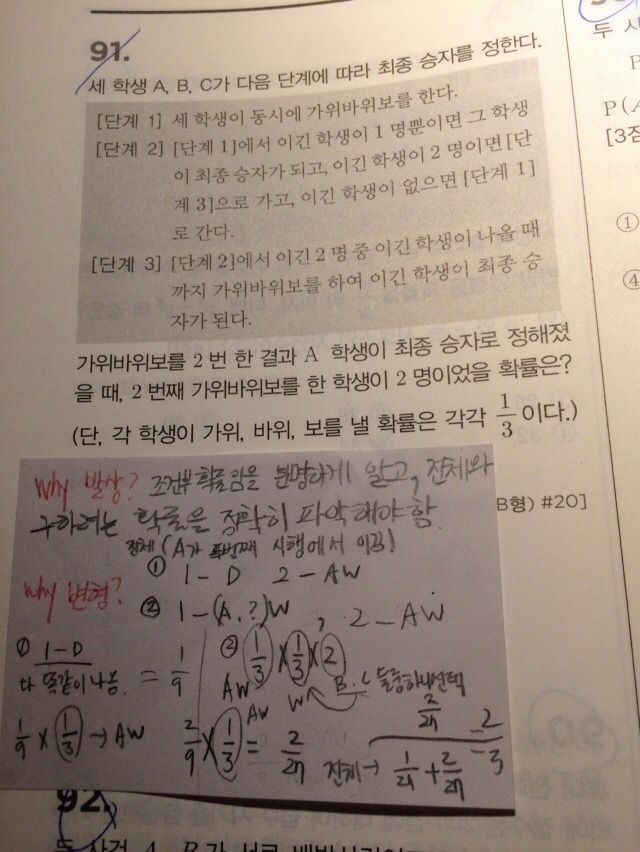 91.
두 사
세 학생 A, B, C가 다음 단계에 따라 최종 승자를 정한다.
[단계 1] 세 학생이 동시에 가위바위보를 한다.
[단계 2] [단계 1]에서 이긴 학생이 1 명뿐이면 그 학생
이 최종 승자가 되고, 이긴 학생이 2 명이면 [단
계 3]으로 가고, 이긴 학생이 없으면 [단계 1]
로 간다.
[단계 3] [단계 2]에서 이긴 2 명 중 이긴 학생이 나올 때
까지 가위바위보를 하여 이긴 학생이 최종 승
자가 된다.
P(A
[3점
①
④
가위바위보를 2 번 한 결과 A 학생이 최종 승자로 정해졌
을 때, 2 번째 가위바위보를 한 학생이 2 명이었을 확률은?
(단, 각 학생이 가위, 바위, 보를 낼 확률은 각각 1/3 이다.)
B형) #20]
Why 발상? 조건부확률임을 분명하게 알고, 전체와
구하려는 확률을 정확히 파악해야 함.
전체 (A가 두번째 시행에서 이김)
Why 변형?
① 1-D 2-AW
② 1-(A.?)W , 2-AW
① 1-D / 다 똑같이 나옴. = 1/9
1/9 × 1/3 → AW
② 1/3 × 1/3 × 2
AW W B.C 둘중하나선택
2/9 × 1/3 = 2/27
AW
전체→ 2/27 / 1/27 + 2/27 = 2/3
92.